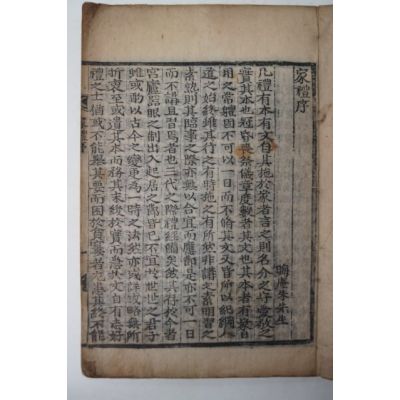 家禮序
晦庵朱先生
凡禮有本有文自其施於家者言之則名分之守愛敬之
實其本也冠昏喪祭儀章度數者其文也其本者有家日
用之常體固不可以一日而不脩其文又皆所以紀綱人
道之始終雖其行之有時施之有所然非講之素明習之
素熟則其臨事之際亦無以合宜而應節是亦不可一日
而不講且習焉者也三代之際禮經備矣然其存於今者
宮廬器服之制出入起居之節皆已不宜於世世之君子
雖或酌以古今之變更爲一時之法然亦或詳或略無所
折衷至或遺其本而務其末緩於實而急於文自有志好
禮之士猶或不能擧其要而困於貧窶者尤患其終不能